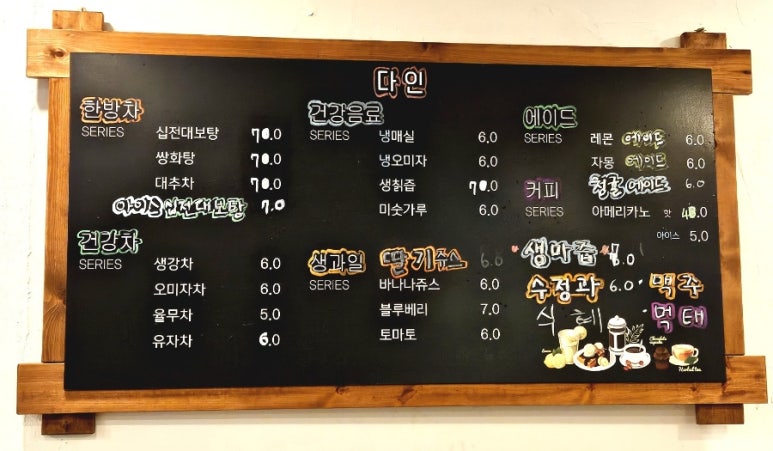 다인
한방차
SERIES
십전대보탕 7.0
쌍화탕 7.0
대추차 7.0
아이스 십전대보탕 7.0
건강차
SERIES
생강차 6.0
오미자차 6.0
율무차 5.0
유자차 6.0
건강음료
SERIES
냉매실 6.0
냉오미자 6.0
생칡즙 7.0
미숫가루 6.0
생과일
SERIES
딸기쥬스 6.0
바나나쥬스 6.0
블루베리 7.0
토마토 6.0
에이드
SERIES
레몬 에이드 6.0
자몽 에이드 6.0
청귤 에이드 6.0
커피
SERIES
아메리카노 핫 4.0
아이스 5.0
생마즙 7.0
수정과 6.0
식혜
맥주
먹태
Herbal tea